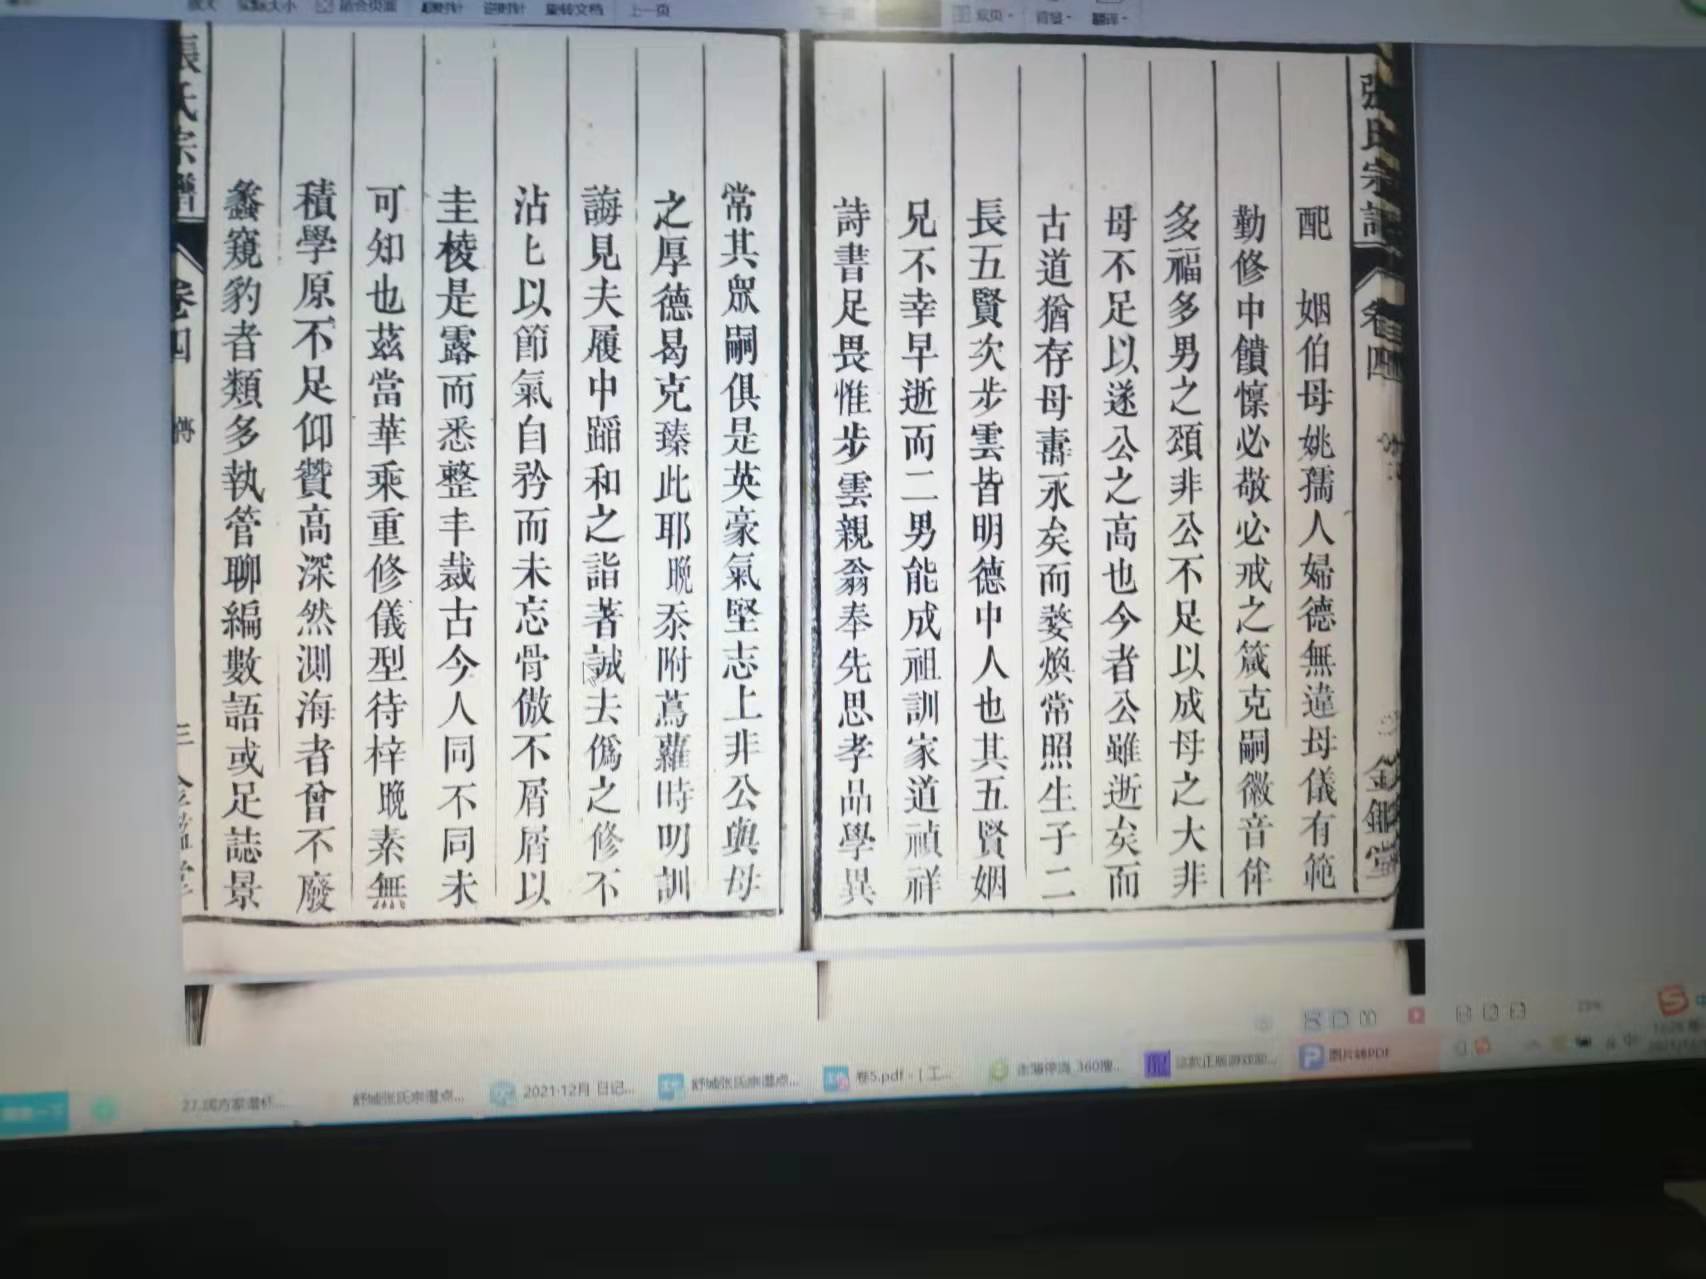 放大 实际大小 适合页面 顺时针 逆时针 旋转文档 上一页
下一页 双页 背景 翻译
張氏宗譜
卷四
配 姻伯母姚孺人婦德無違母儀有範
勤修中饋懍必敬必戒之箴克嗣徽音侔
多福多男之頌非公不足以成母之大非
母不足以遂公之高也今者公雖逝矣而
古道猶存母壽永矣而婺煥常照生子二
長五賢次步雲皆明德中人也其五賢姻
兄不幸早逝而二男能成祖訓家道禎祥
詩書足畏惟步雲親翁奉先思孝品學異
常其眾嗣俱是英豪氣堅志上非公與母
之厚德曷克臻此耶晚忝附蔦蘿時明訓
誨見夫履中蹈和之詣著誠去僞之修不
沾匕以節氣自矜而未忘骨傲不屑屑以
圭棱是露而悉整丰裁古今人同不同未
可知也茲當華乘重修儀型待梓晚素無
積學原不足仰贊高深然測海者曾不廢
蠡窺豹者類多執管聊編數語或足誌景
張氏宗譜
卷四
傳
三
2021-12月 日记...
舒城张氏宗谱点...
卷5.pdf - [ 工...
图片转PDF